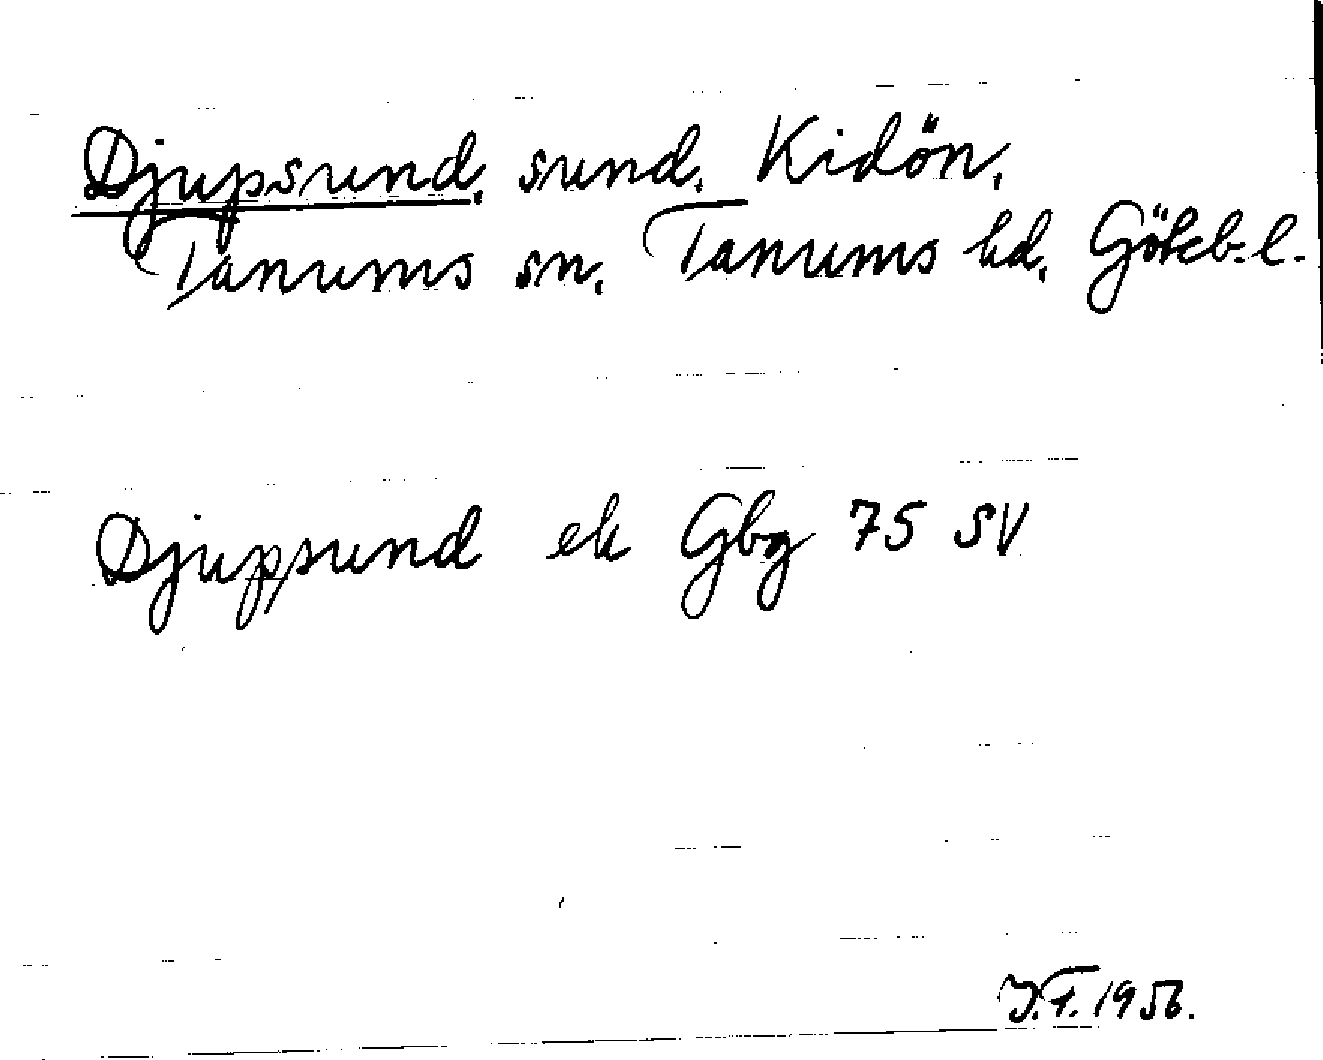 Djupsund, sund, Kidön,
Tanums sn, Tanums hd, Göteb.l.
Djupsund ek Gbg 75 SV
1956.